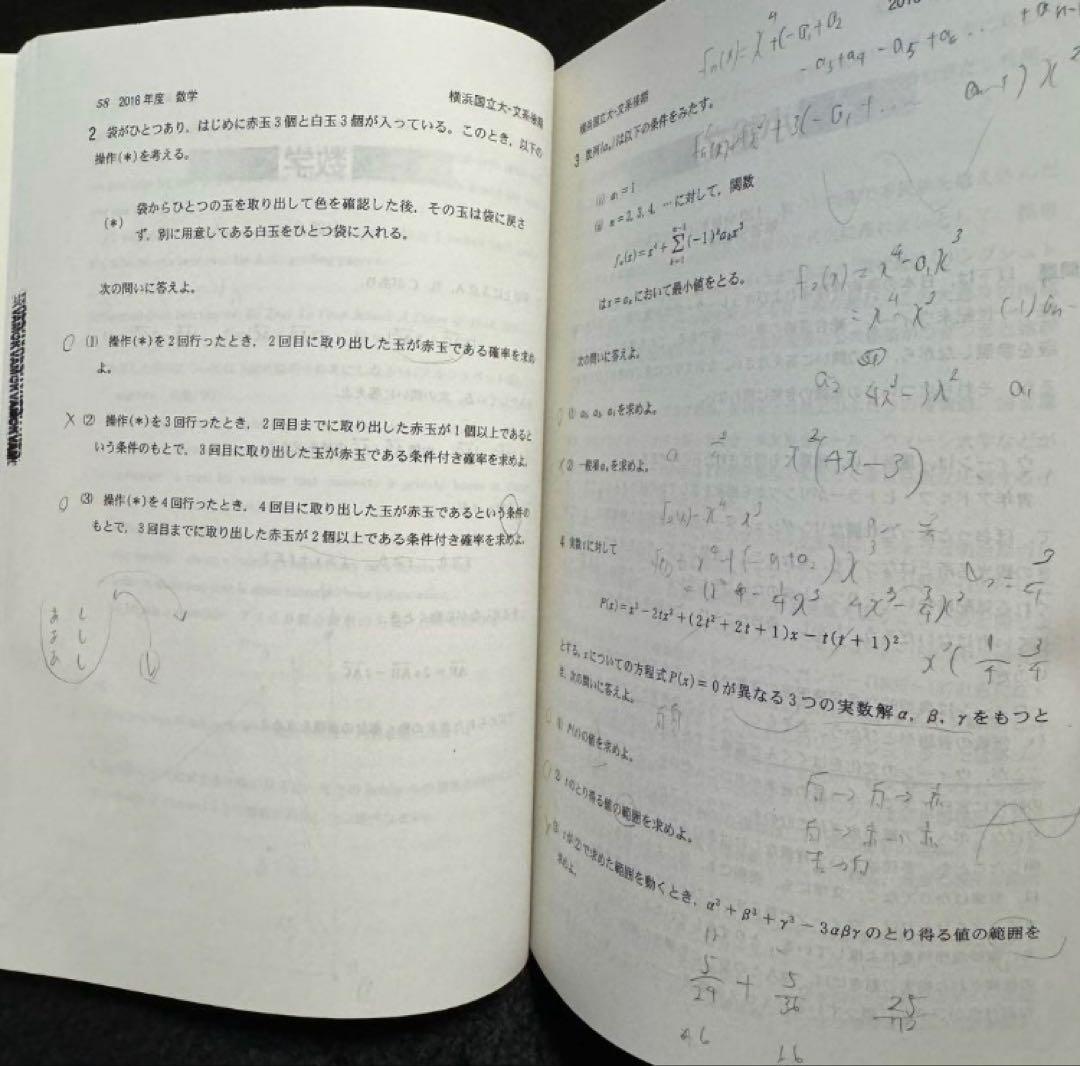 58 2016年度 数学
横浜国立大-文系後期
2 袋がひとつあり，はじめに赤玉3個と白玉3個が入っている。このとき，以下の
操作(*)を考える。
(*) 袋からひとつの玉を取り出して色を確認した後，その玉は袋に戻さ
ず，別に用意してある白玉をひとつ袋に入れる。
次の問いに答えよ。
○ (1) 操作(*)を2回行ったとき，2回目に取り出した玉が赤玉である確率を求め
よ。
× (2) 操作(*)を3回行ったとき，2回目までに取り出した赤玉が1個以上であると
いう条件のもとで，3回目に取り出した玉が赤玉である条件付き確率を求めよ。
○ (3) 操作(*)を4回行ったとき，4回目に取り出した玉が赤玉であるという条件の
もとで，3回目までに取り出した赤玉が2個以上である条件付き確率を求めよ。
横浜国立大-文系後期
3 数列{aₙ}は以下の条件をみたす。
(i) a₁=1
(ii) n=2, 3, 4, …に対して，関数
fₙ(x)=x⁴+Σ_{k=1}^{n-1}(-1)ᵏaₖx³
はx=aₙにおいて最小値をとる。
f₂(x) = x⁴-a₁x³
= x⁴-x³
次の問いに答えよ。
4x³-3x² a₁
(1) a₂, a₃, a₄を求めよ。
x²(4x-3)
(2) 一般項aₙを求めよ。
4 実数tに対して
P(x)=x³-2tx²+(2t²+2t+1)x-t(t+1)²
とする。xについての方程式P(x)=0が異なる3つの実数解α，β，γをもつと
き，次の問いに答えよ。
(1) P(t)の値を求めよ。
(2) tのとり得る値の範囲を求めよ。
白→白→赤
白→赤→赤
赤→白
(3) tが(2)で求めた範囲を動くとき，α³+β³+γ³-3αβγのとり得る値の範囲を
求めよ。
5/29 + 5/36